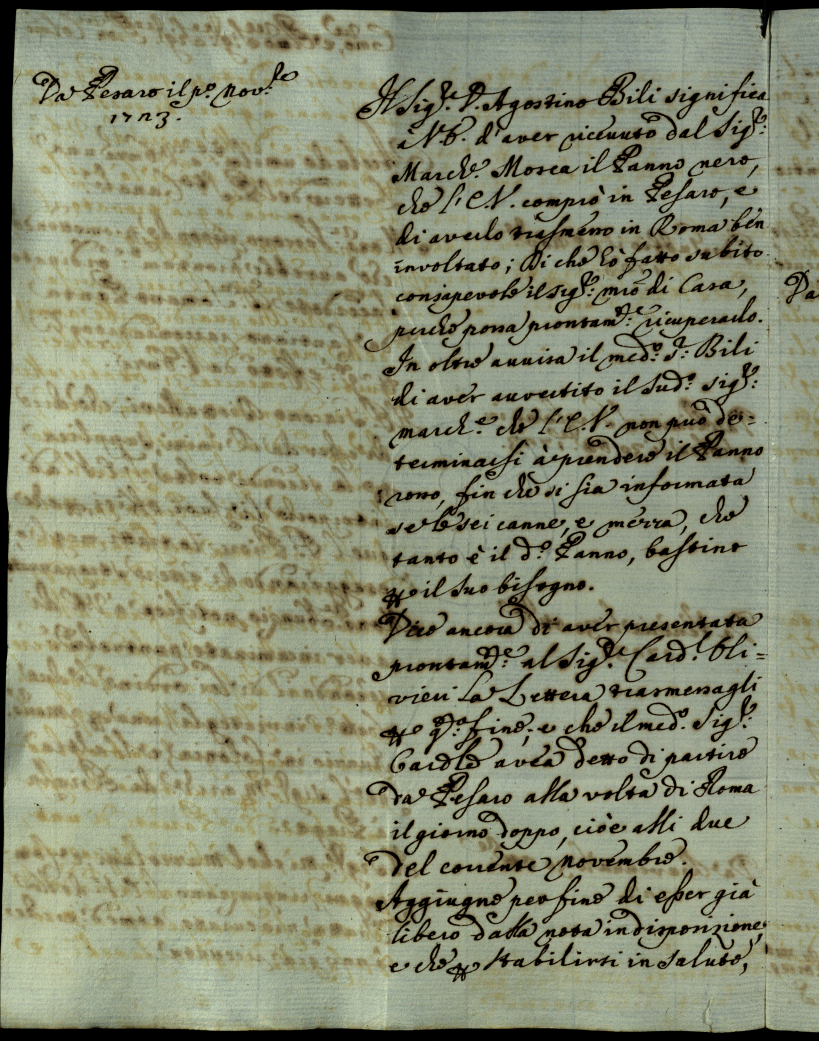 Da Pesaro il p.º Nov.re
1723.
Il Sig.re D. Agostino Bili significa
à V. E. d'aver ricevuto dal Sig.r
March.e Mosca il Panno nero,
che l'E.V. comprò in Pesaro, e
di averlo trasmesso in Roma ben
involtato; di che hò fatto subito
consapevole il Sig.r mio di Casa,
perche possa prontam.te ricuperarlo.
In oltre avvisa il med.º S.r Bili
di aver avvertito il Sud.º Sig.r
march.e che l'E.V. non può de=
terminarsi à prendere il Panno
, fin che si sia informata
se le sei canne, e mezza, che
tanto è il d.º Panno, bastino
per il suo bisogno.
Dice ancora di aver presentata
prontam.te al Sig.r Card.l Oli=
vieri la Lettera trasmessagli
per q.º fine; e che il med.º Sig.r
Cardle avea detto di partire
da Pesaro alla volta di Roma
il giorno doppo, cioè alli due
del corrente Novembre.
Aggiugne per fine di esser già
libero dalla nota indisposizione,
e che per stabilirsi in salute,
Da